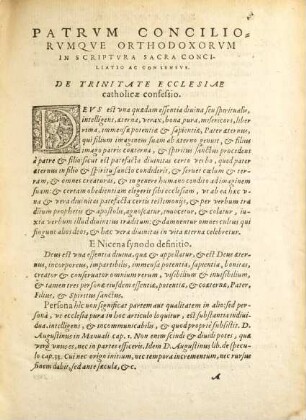 PATRVM CONCILIO-
RVMQVE ORTHODOXORVM
IN SCRIPTVRA SACRA CONCI-
LIATIO AC CONSENSVS.
DE TRINITATE ECCLESIAE
catholicæ confessio.
DEVS est vna quædam essentia diuina seu spiritualis,
intelligens, æterna, verax, bona pura, misericors, libera
rima, immensæ potentiæ & sapientiæ, Pater æternus,
qui filium imaginem suam ab æterno genuit, & filius
imago patris coæterna, & spiritus sanctus procedens
à patre & filio sicut est patefacta diuinitas certo verbo, quod pater
æternus cū filio & spiritu sancto condiderit, & seruet cælum & ter-
ram, & omnes creaturas, & in genere humano condito ad imaginem
suam & certam obedientiam elegerit sibi ecclesiam, vt ab ea hæc v-
na & vera diuinitas patefacta certis testimonijs, & per verbum tra-
ditum prophetis & apostolis, agnoscatur, inuocetur, & colatur, iu-
xta verbum illud diuinitus traditum: & damnentur omnes cultus qui
fingunt alios deos, & hæc vera diuinitas in vita æterna celebretur.
E Nicena synodo definitio.
Deus est vna essentia diuina, quæ & appellatur, & est Deus æter-
nus, incorporeus, impartibilis, immensa potentia, sapientia, bonitas,
creator & conseruator omnium rerum, visibilium & inuisibilium,
& tamen tres personæ eiusdem essentiæ, potentiæ, & coæternæ, Pater,
Filius, & Spiritus sanctus.
Persona hîc non significat partem aut qualitatem in alio, sed per-
sona, vt ecclesia pura in hoc articulo loquitur, est substantia indiui-
dua, intelligens, & incommunicabilis, & quod propriè subsistit. D.
Augustinus in Manuali cap. 1. Non enim scindi & diuidi potes, quia
verè vnus es, nec in partes efficeris. Idem D. Augustinus lib. de specu-
lo cap. 19. Cui nec origo initium, nec tempora incrementum, nec rursus
finem dabit, sed ante sæcula, &c.
A